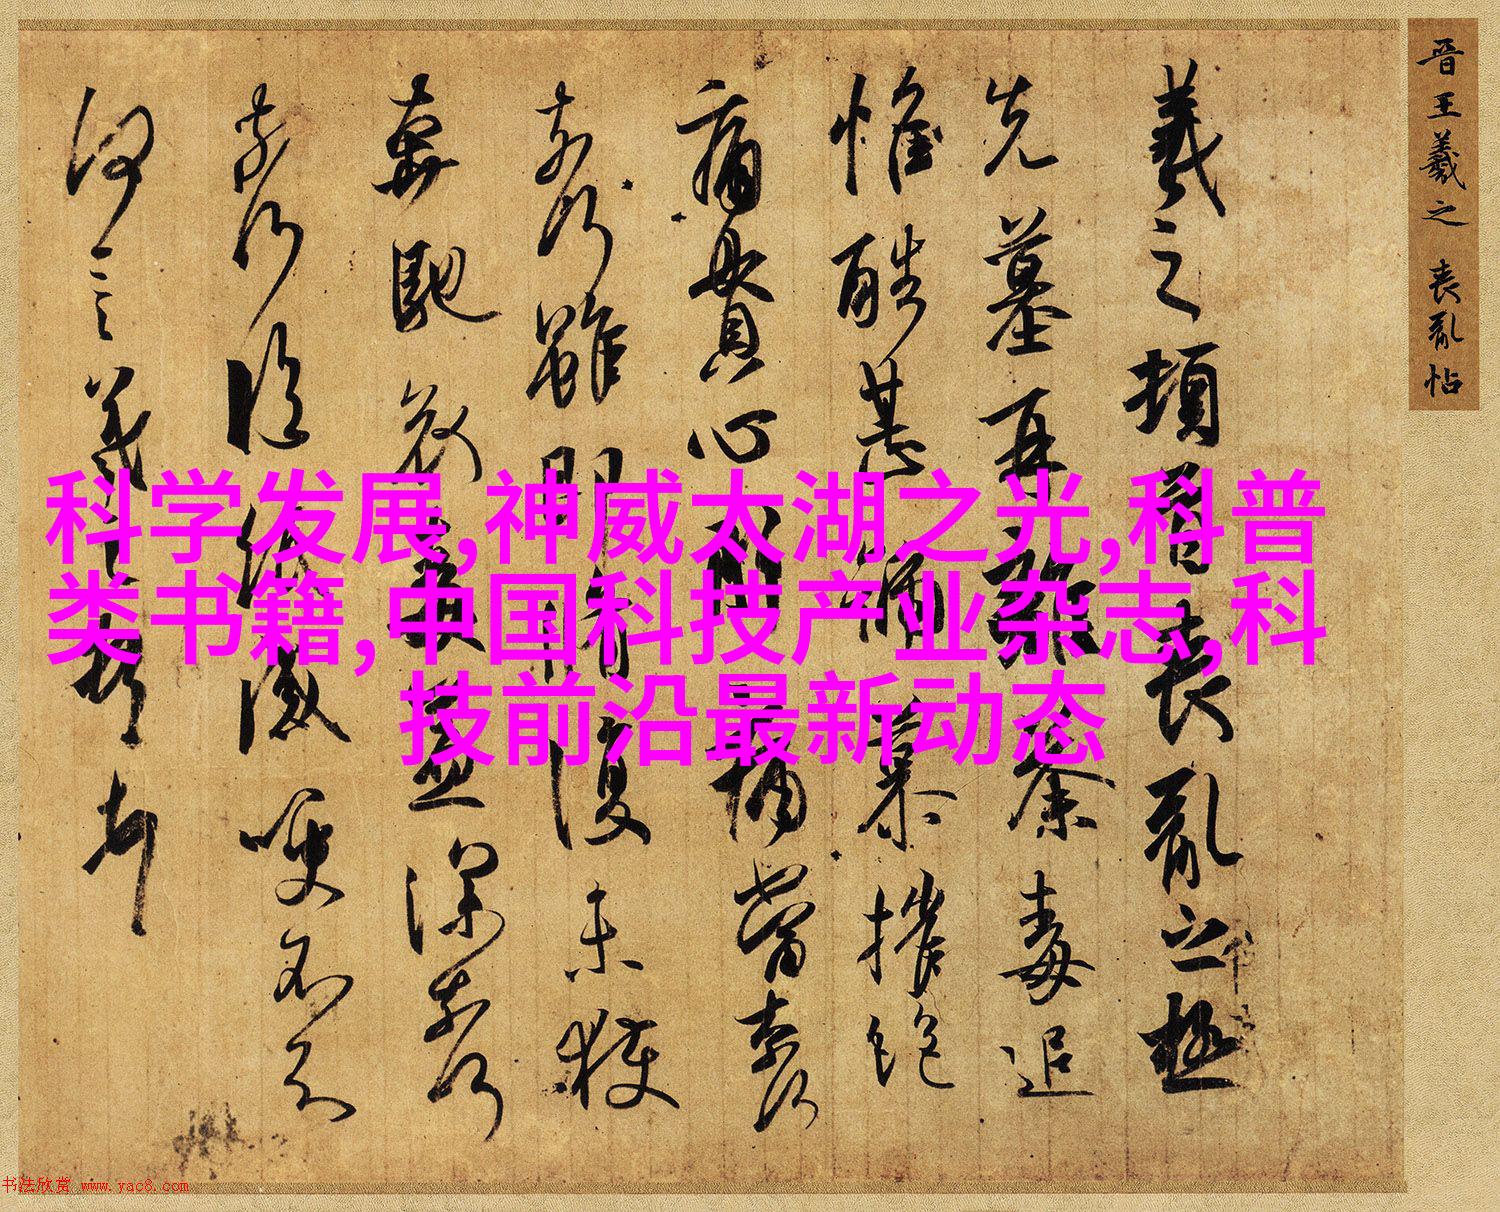 晋王羲之 喪亂帖
羲之頓首喪亂之極
先墓再離荼毒追
惟酷甚號慕摧絕
痛貫心肝痛當奈何
奈何雖即脩復未獲
奔馳哀毒益深奈何
奈何臨紙感哽不知
何言羲之頓首頓首
科学发展,神威太湖之光,科普
类书籍,中国科技产业杂志,科
技前沿最新动态
书法欣赏 www.yac8.com